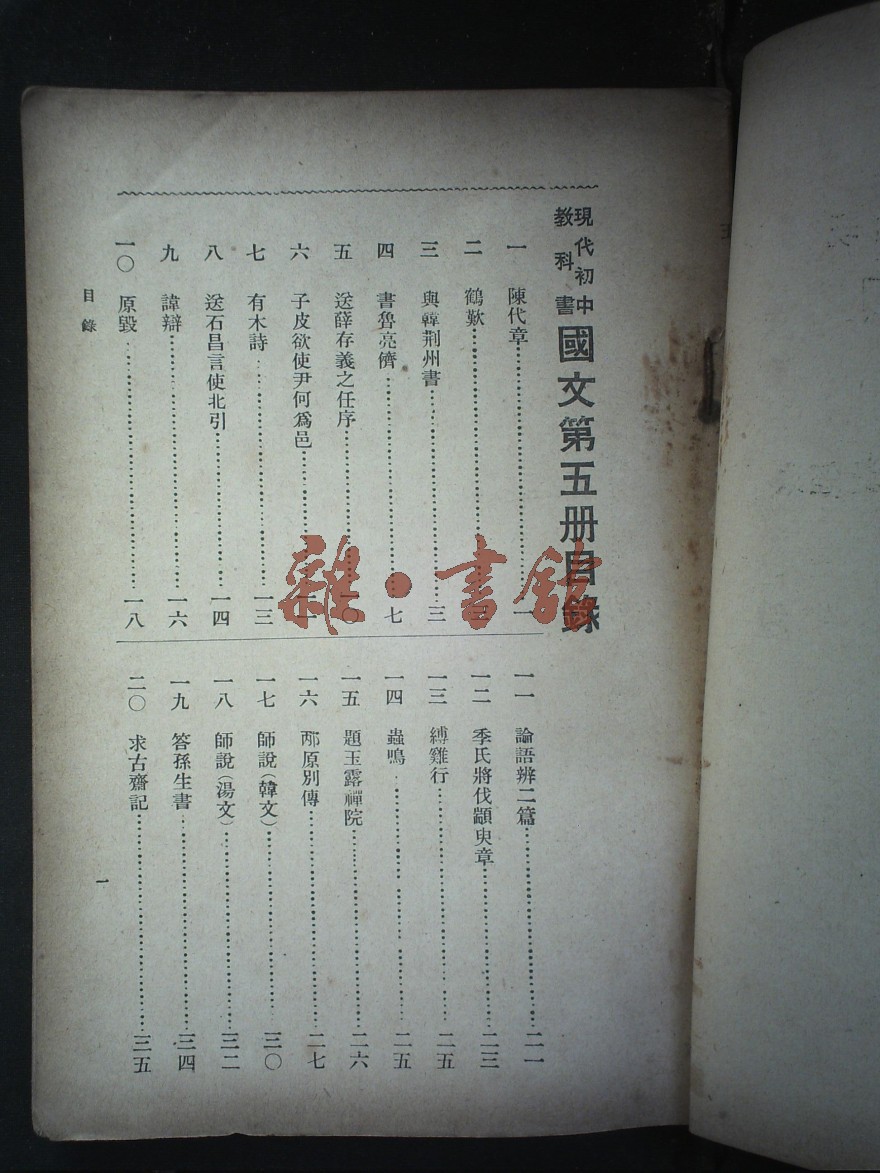 現代初中
教科書
國文第五册目錄
一 陳代章 一
二 鶴歎
三 與韓荆州書 三
四 書魯亮儕 七
五 送薛存義之任序 一〇
六 子皮欲使尹何爲邑 一一
七 有木詩 一三
八 送石昌言使北引 一四
九 諱辯 一六
一〇 原毀 一八
一一 論語辨二篇 二一
一二 季氏將伐顓臾章 二三
一三 縛雞行 二五
一四 蟲鳴 二五
一五 題玉露禪院 二六
一六 邴原別傳 二七
一七 師說(韓文) 三〇
一八 師說(湯文) 三二
一九 答孫生書 三四
二〇 求古齋記 三五
目錄
一
雜·書館